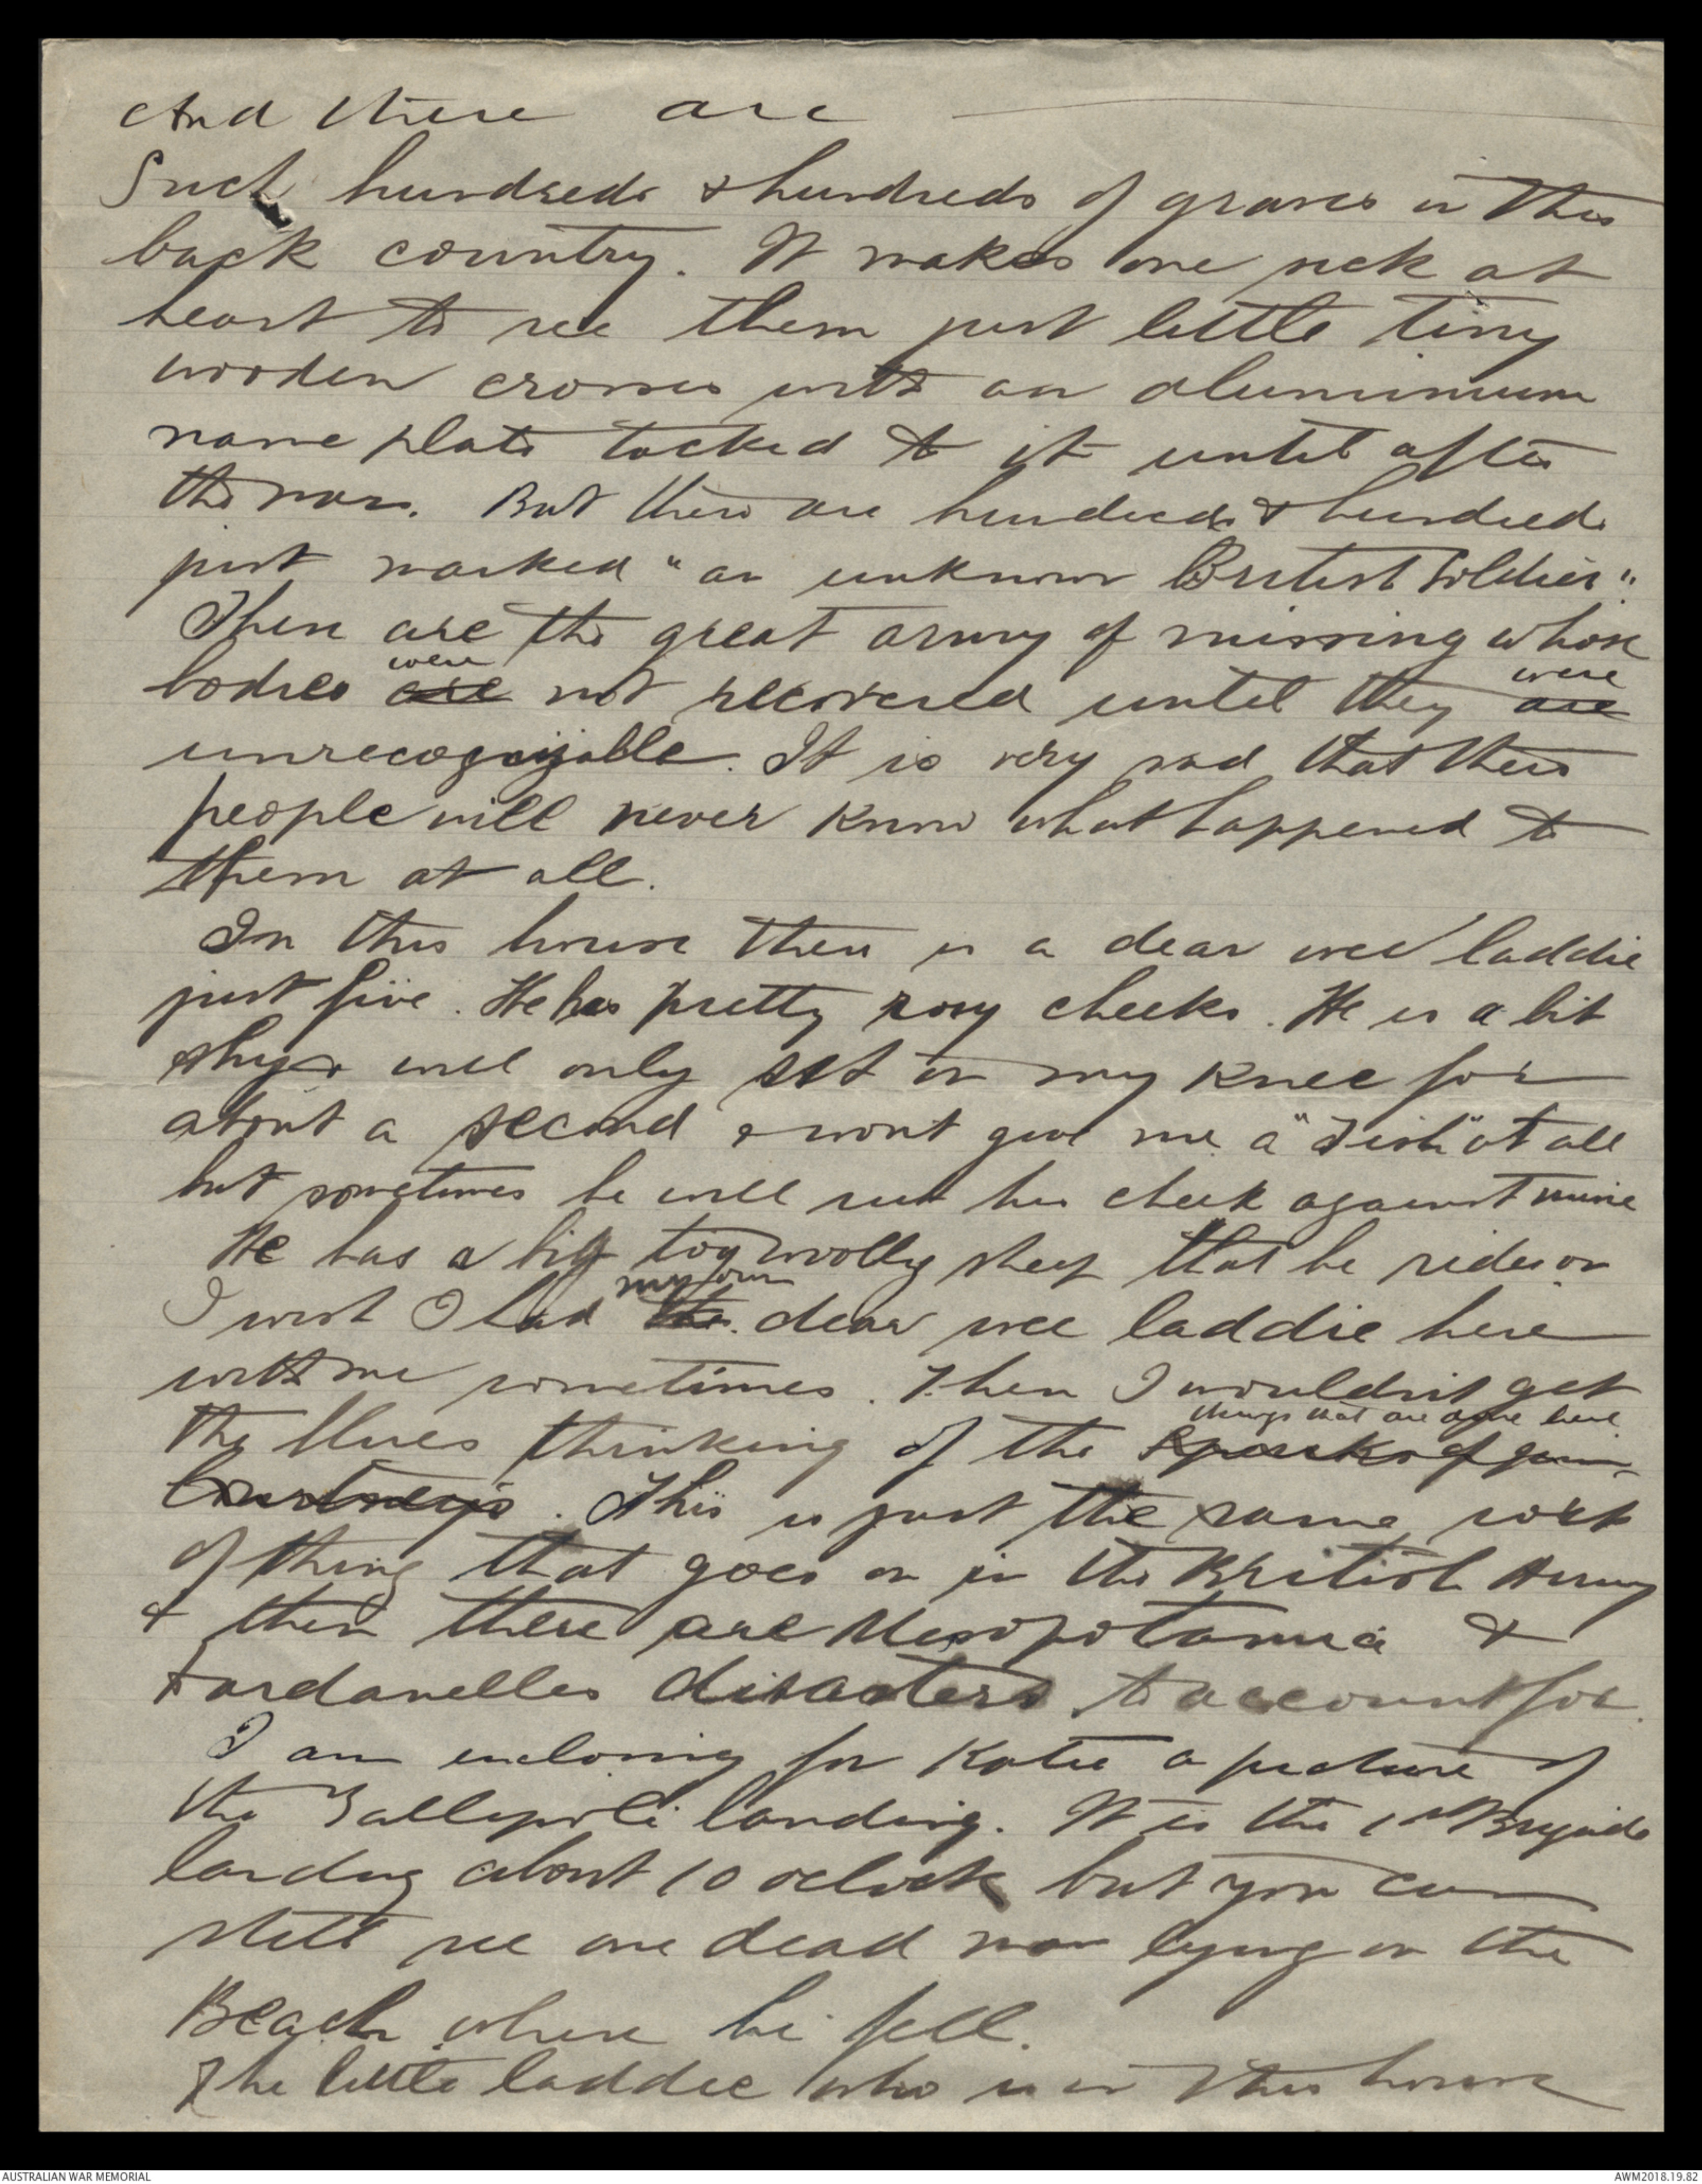 And there are
Such hundreds & hundreds of graves in this
back country. It makes one sick at
heart to see them just little tiny
wooden crosses with an aluminium
name plate tacked to it until after
the war. But there are hundreds & hundreds
just marked "an unknown British Soldier".
Then are the great army of missing whose
bodies were are not recovered until they were are
unrecognizable. It is very sad that their
people will never know what happened to
them at all.
In this house there is a dear wee laddie
just five. He has pretty rosy cheeks. He is a bit
shy & will only sit on my knee for
about a second & wont give me a "Tish" at all
but sometimes he will rub his cheek against mine
He has a big toy woolly sheep that he rides on
I wish I had my own the dear wee laddie here
with me sometimes. Then I wouldn't get
the blues thinking of the things that are done here
. This is just the same sort
of thing that goes on in the British Army
& then there are Mesopotamia &
Dardanelles disasters to account for.
I am enclosing for Katie a picture of
the Gallipoli landing. It is the 1st Brigade
landing about 10 oclock but you can
still see one dead man lying on the
Beach where he fell.
The little laddie who is in this house
AUSTRALIAN WAR MEMORIAL
AWM2018.19.82